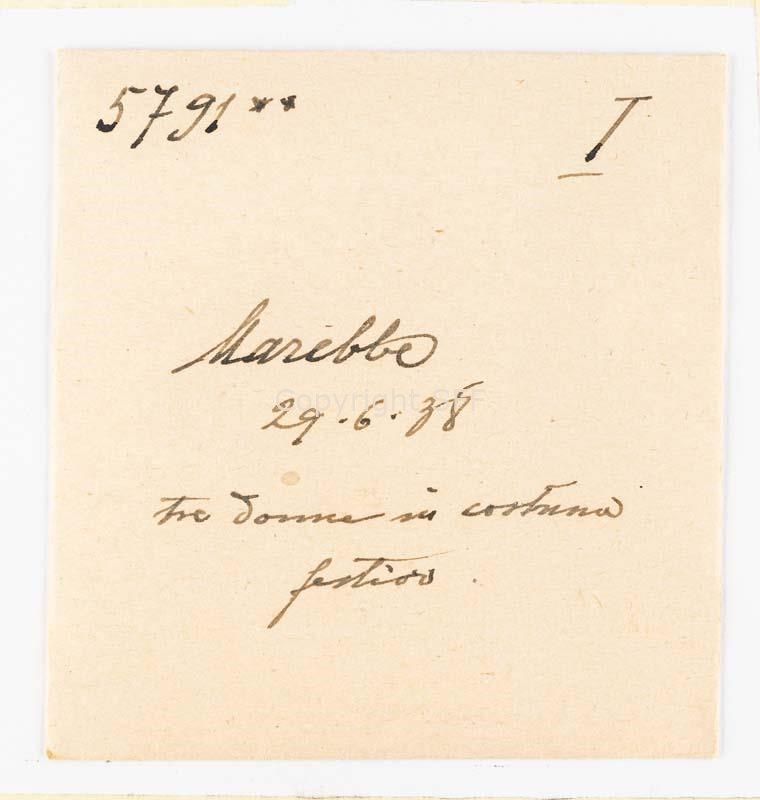 5791** I
Marebbe
Copyright SFF
29.6.38
tre donne in costume
festivo.